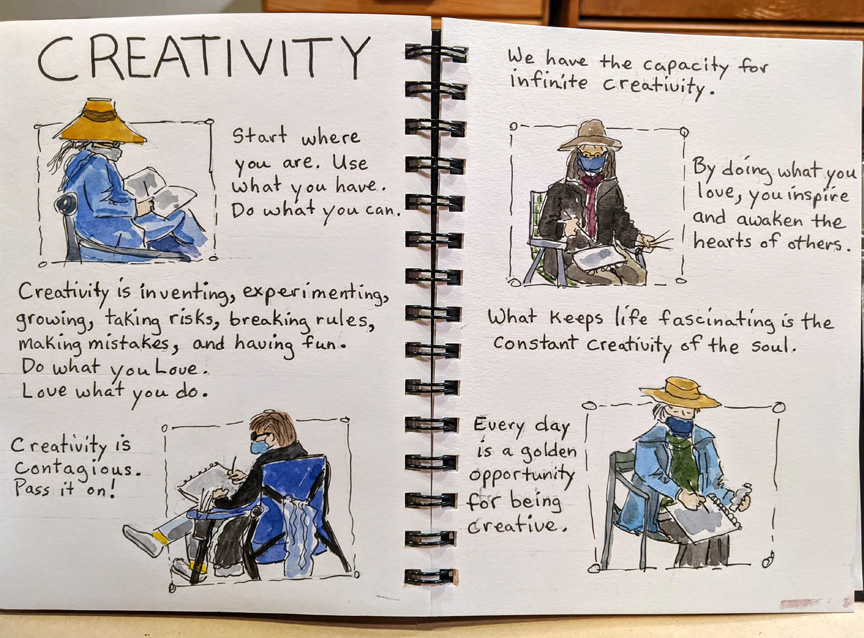 CREATIVITY
Start where
you are. Use
what you have.
Do what you can.
Creativity is inventing, experimenting,
growing, taking risks, breaking rules,
making mistakes, and having fun.
Do what you Love.
Love what you do.
Creativity is
Contagious.
Pass it on!
We have the capacity for
infinite creativity.
By doing what you
love, you inspire
and awaken the
hearts of others.
What keeps life fascinating is the
constant creativity of the soul.
Every day
is a golden
opportunity
for being
creative.